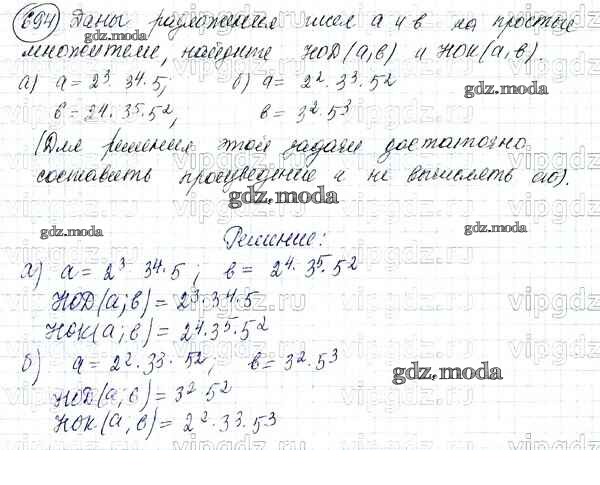 694) Даны разложения чисел a и b на простые
множители, найдите НОД(a,b) и НОК(a,b).
а) a = 2³ · 3⁴ · 5; б) a = 2² · 3³ · 5²
b = 2⁴ · 3⁵ · 5², b = 3² · 5³
(Для решения этой задачи достаточно
составить произведение и не вычислять его).
Решение:
а) a = 2³ · 3⁴ · 5; b = 2⁴ · 3⁵ · 5²
НОД(a; b) = 2³ · 3⁴ · 5
НОК(a; b) = 2⁴ · 3⁵ · 5²
б) a = 2² · 3³ · 5²; b = 3² · 5³
НОД(a; b) = 3² · 5²
НОК(a, b) = 2² · 3³ · 5³
gdz.moda
gdz.moda
gdz.moda
gdz.moda
gdz.moda
gdz.moda